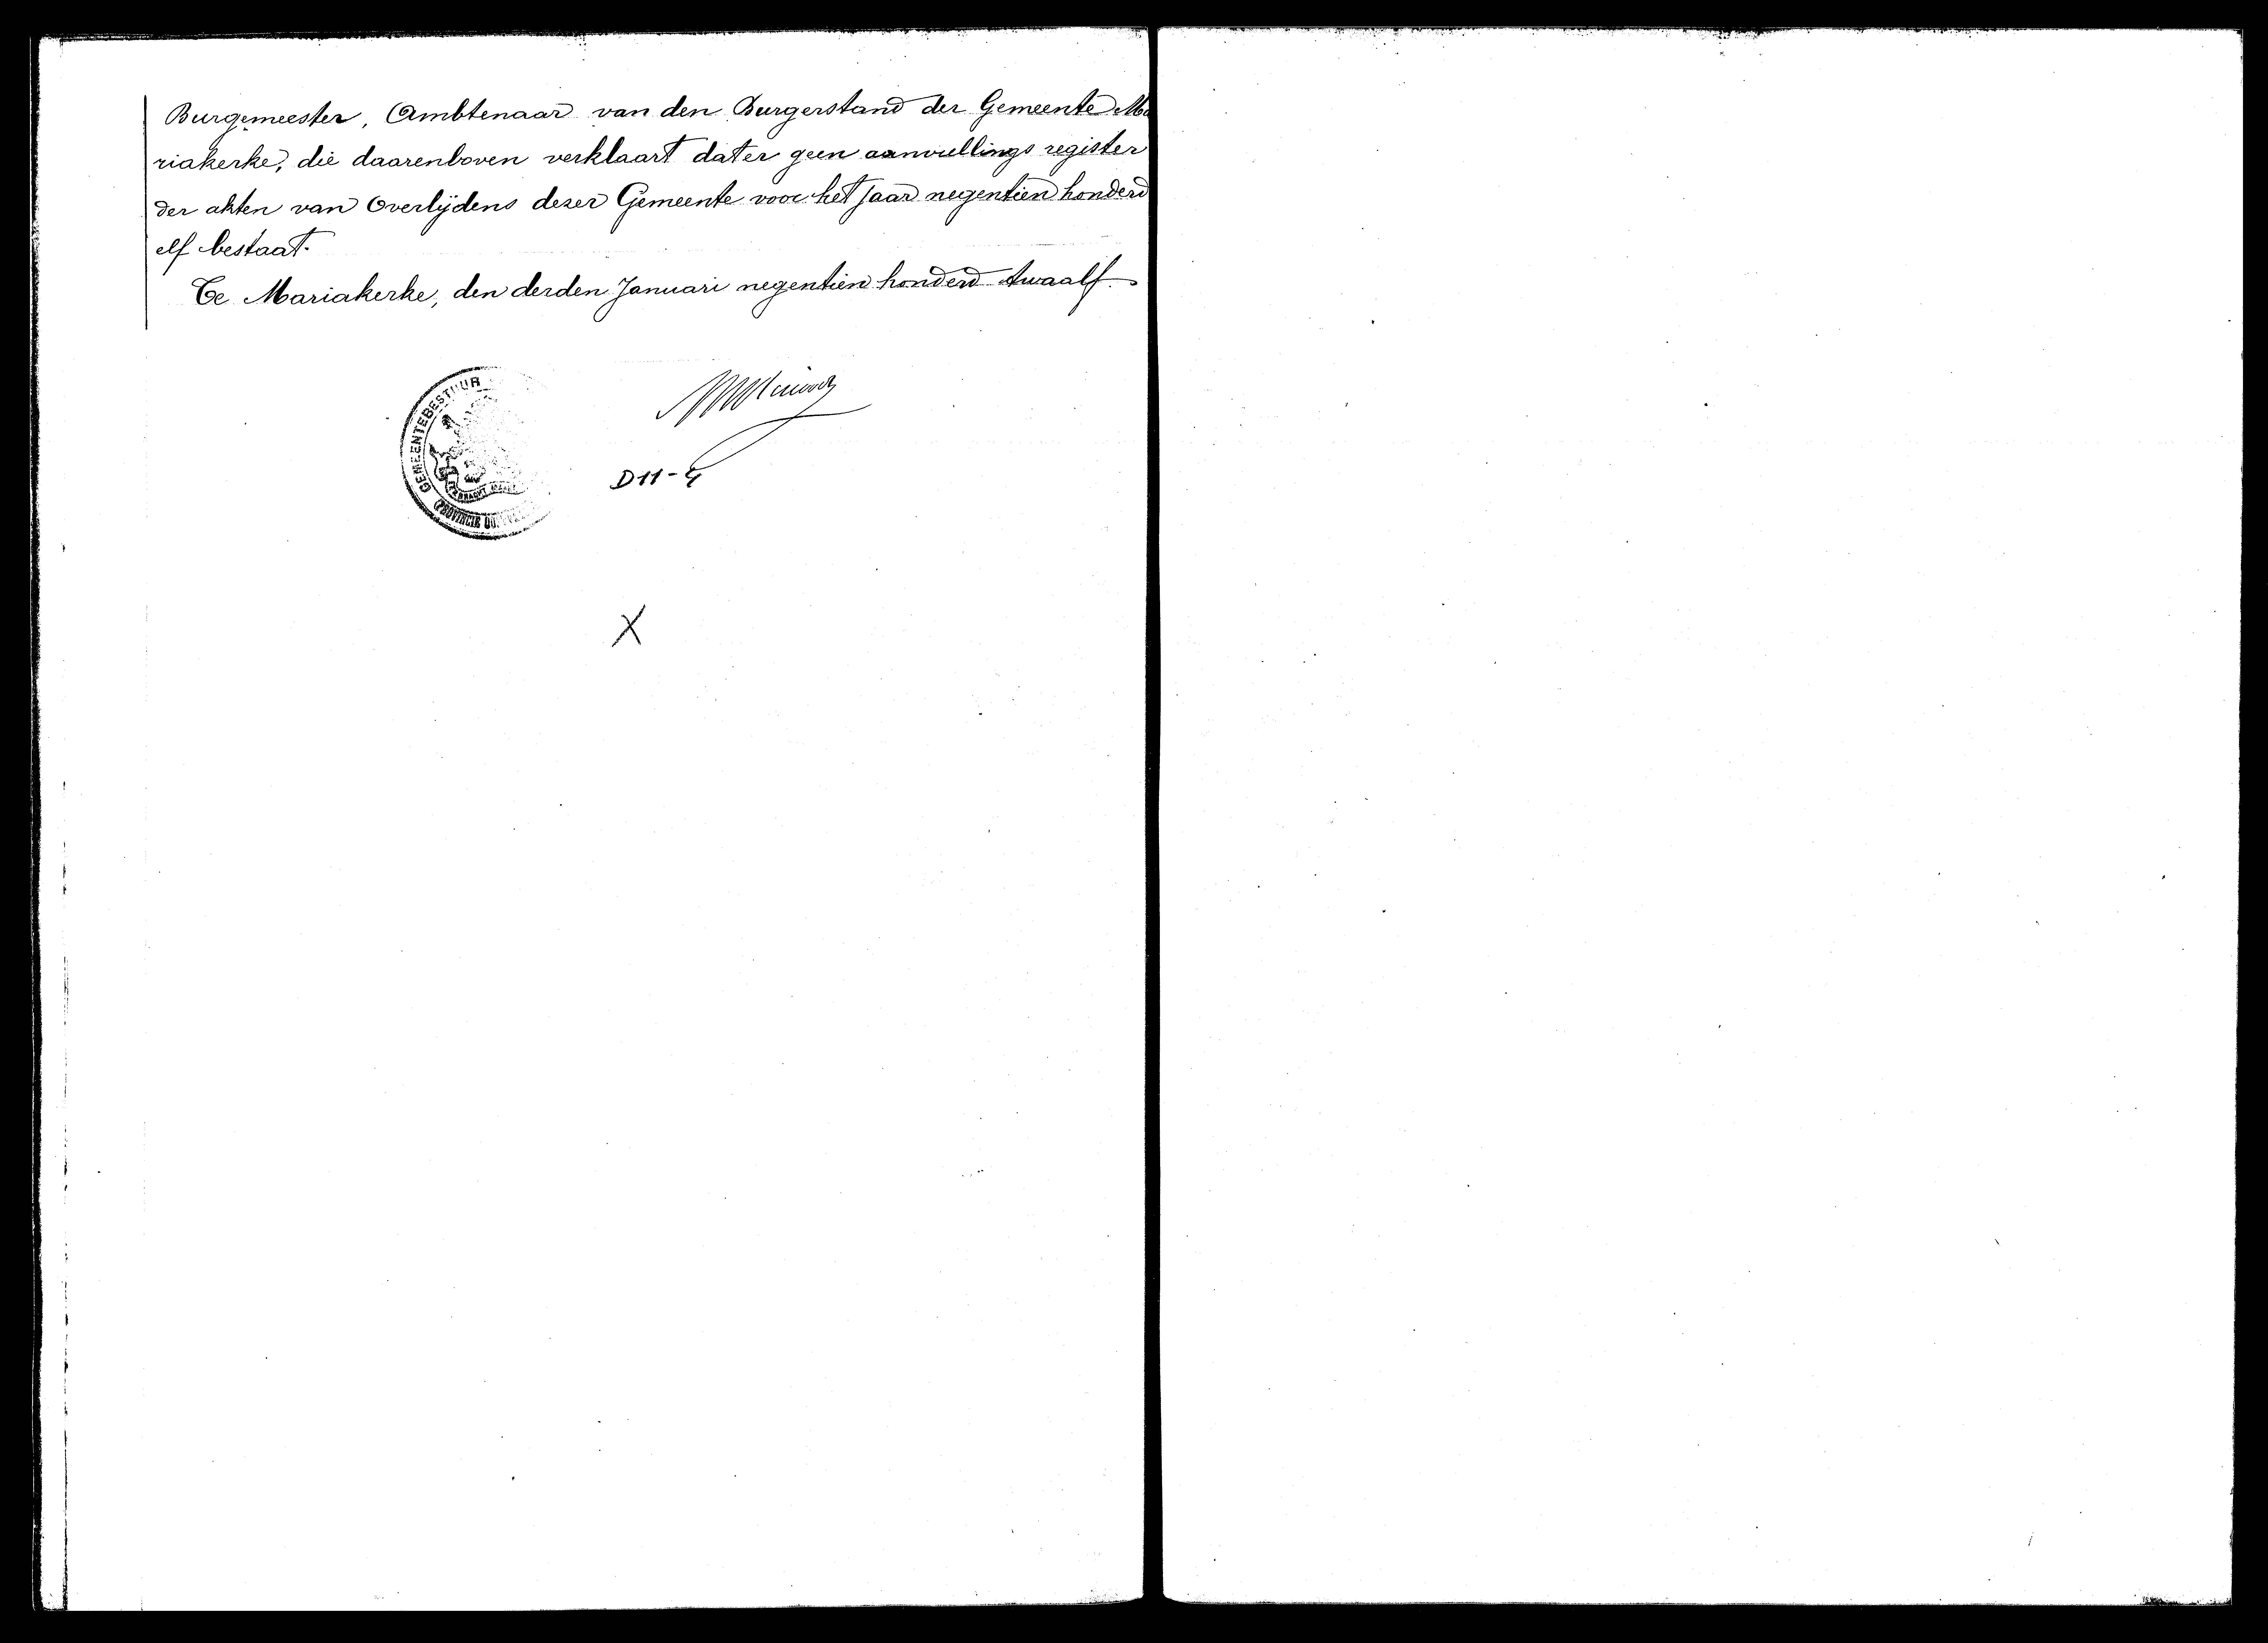 Burgemeester, Ambtenaar van den Burgerstand der Gemeente Ma
riakerke, die daarenboven verklaart dat er geen aanvullings register
der akten van Overlijdens dezer Gemeente voor het Jaar negentien honderd
elf bestaat.
Te Mariakerke, den derden Januari negentien honderd twaalf.
GEMEENTEBESTUUR
(PROVINCIE
D11-4
X